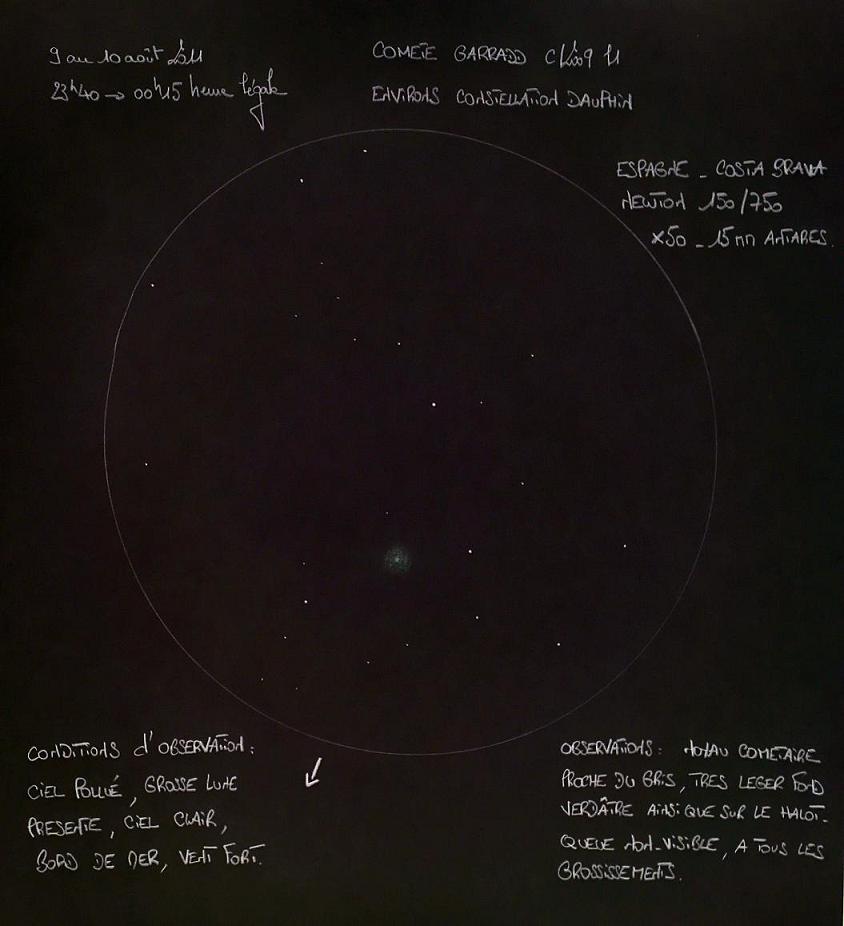 9 au 10 août 2011
23h40 → 00h15 heure légale
COMETE GARRADD C/2009 P1
ENVIRONS CONSTELLATION DAUPHIN
ESPAGNE - COSTA BRAVA
NEWTON 150/750
x50 - 15mm ANTARES.
CONDITIONS d'OBSERVATION :
CIEL POLLUÉ, GROSSE LUNE
PRESENTE, CIEL CLAIR,
BORD DE MER, VENT FORT.
OBSERVATIONS : NOYAU COMETAIRE
PROCHE DU GRIS, TRES LEGER FOND
VERDÂTRE AINSI QUE SUR LE HALOT.
QUEUE NON-VISIBLE, A TOUS LES
GROSSISSEMENTS.